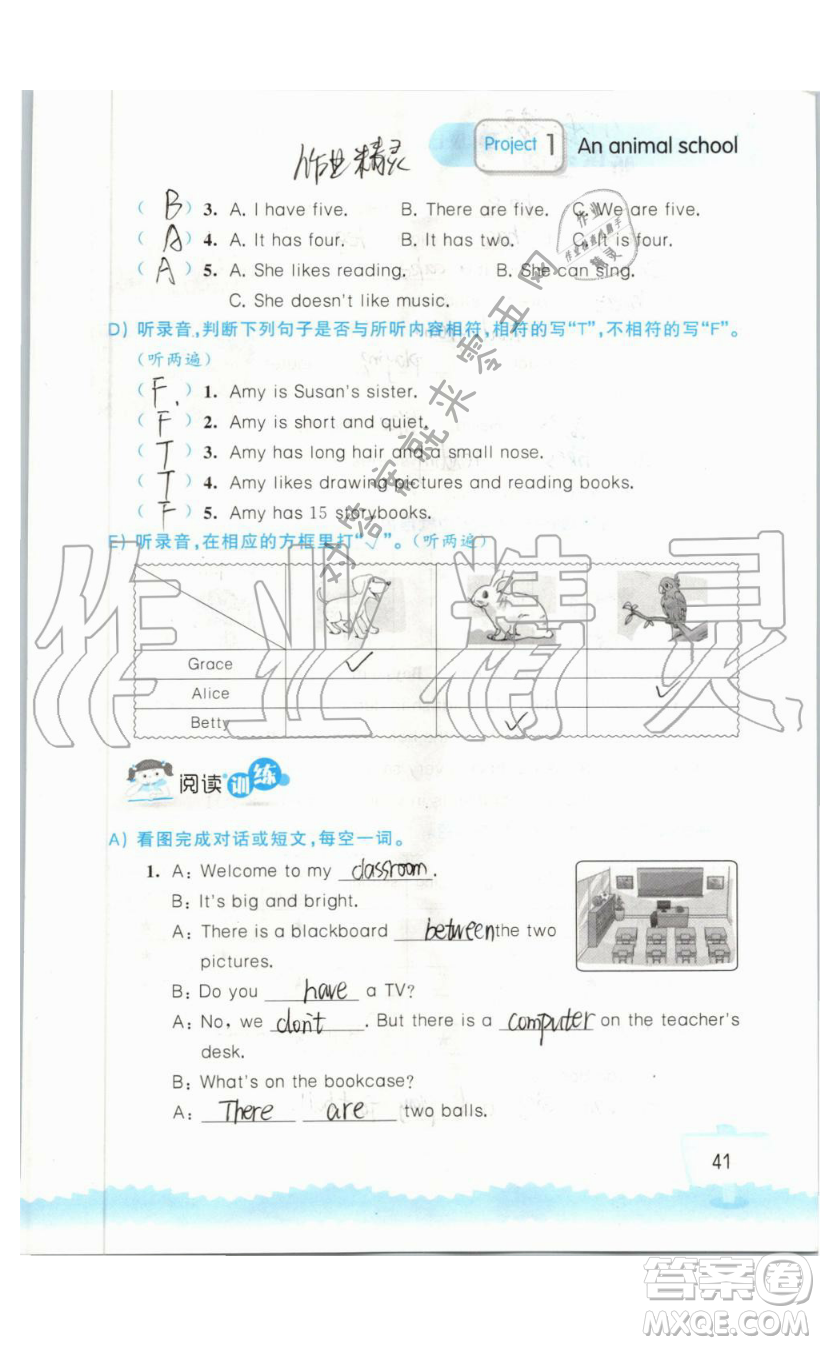 Project 1 An animal school
作业精灵
( B ) 3. A. I have five. B. There are five. C. We are five.
( A ) 4. A. It has four. B. It has two. C. It is four.
( A ) 5. A. She likes reading. B. She can sing.
C. She doesn't like music.
D) 听录音,判断下列句子是否与所听内容相符,相符的写“T”,不相符的写“F”。
(听两遍)
( F ) 1. Amy is Susan's sister.
( F ) 2. Amy is short and quiet.
( T ) 3. Amy has long hair and a small nose.
( T ) 4. Amy likes drawing pictures and reading books.
( F ) 5. Amy has 15 storybooks.
E) 听录音,在相应的方框里打“√”。(听两遍)
Grace ✓
Alice ✓
Betty ✓
阅读训练
A) 看图完成对话或短文,每空一词。
1. A: Welcome to my classroom.
B: It's big and bright.
A: There is a blackboard between the two
pictures.
B: Do you have a TV?
A: No, we don't. But there is a computer on the teacher's
desk.
B: What's on the bookcase?
A: There are two balls.
41
对答案就来零五网
作业精灵
答案卷
MXQE.COM